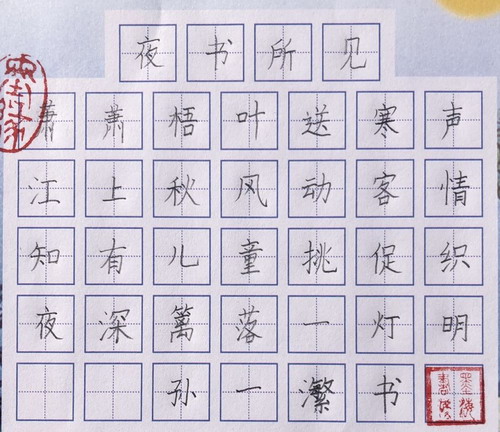 夜书所见
萧萧梧叶送寒声
江上秋风动客情
知有儿童挑促织
夜深篱落一灯明
孙一潆书